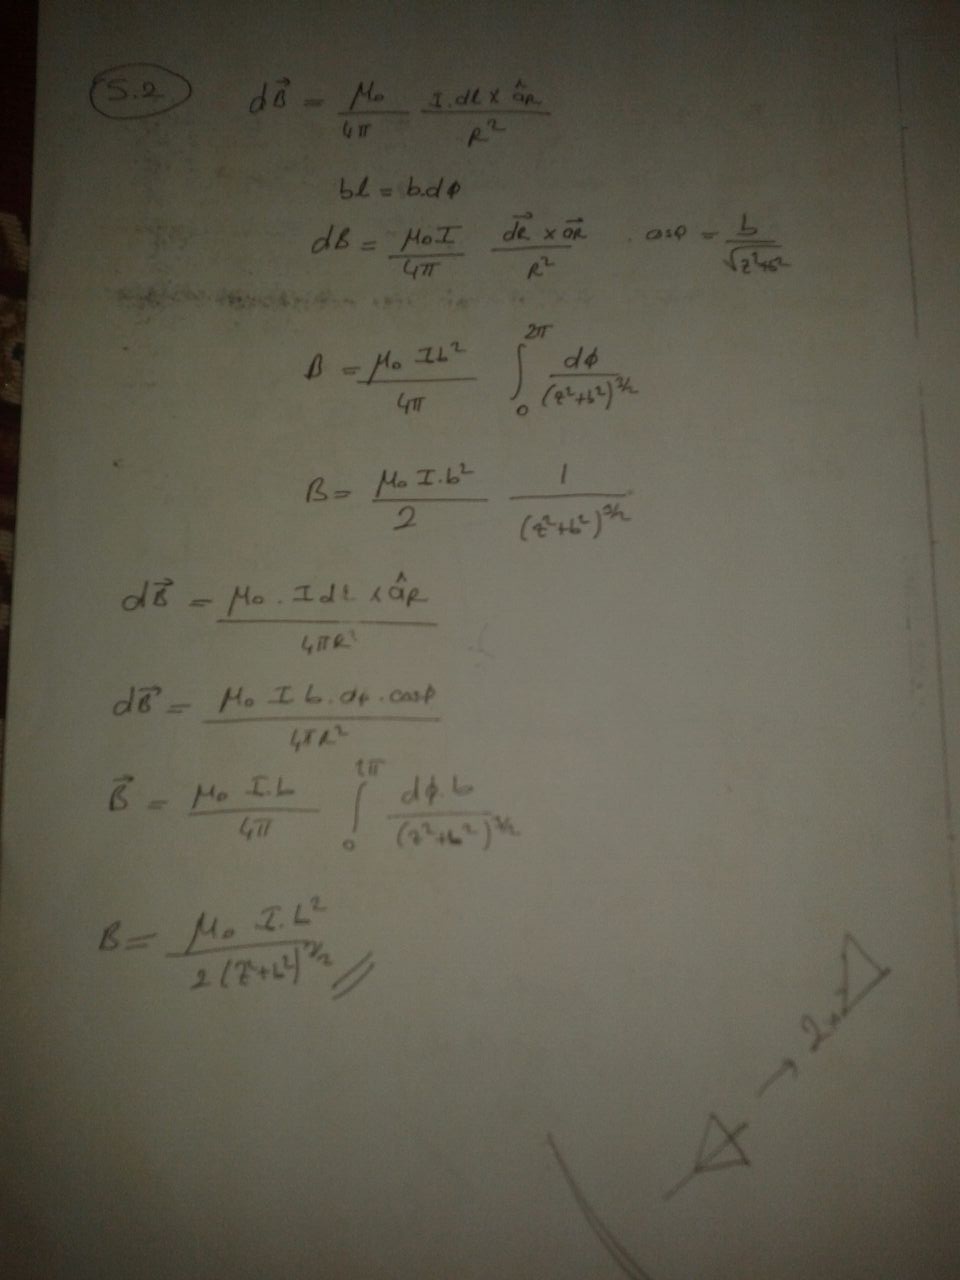 5.2 dB⃗ = μ₀/4π I.dl x âR/R²
bl = b.dφ
dB = μ₀I/4π dl⃗ x aR⃗/R² . cosφ = b/√z²+b²
B = μ₀ Ib²/4π ∫₀^2π dφ/(z²+b²)^3/2
B = μ₀ I.b²/2 1/(z²+b²)^3/2
dB⃗ = μ₀ . I dl x âR/4πR²
dB⃗ = μ₀ I b.dφ.cosφ/4πR²
B⃗ = μ₀ I.b/4π ∫₀^2π dφ.b/(z²+b²)^3/2
B = μ₀ I.b²/2(z²+b²)^3/2 //
→ 2